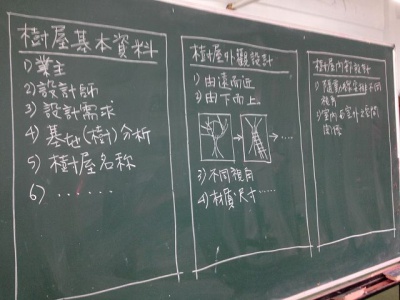 樹屋基本資料
1) 業主
2) 設計師
3) 設計需求
4) 基地(樹)分析
5) 樹屋名称
6) ......
樹屋外觀設計
1) 由遠而近
2) 由下而上
......
3) 不同視角
4) 材質尺寸......
樹屋內部設計
1) 隨
不同
視角
2) 室內與室外之空間